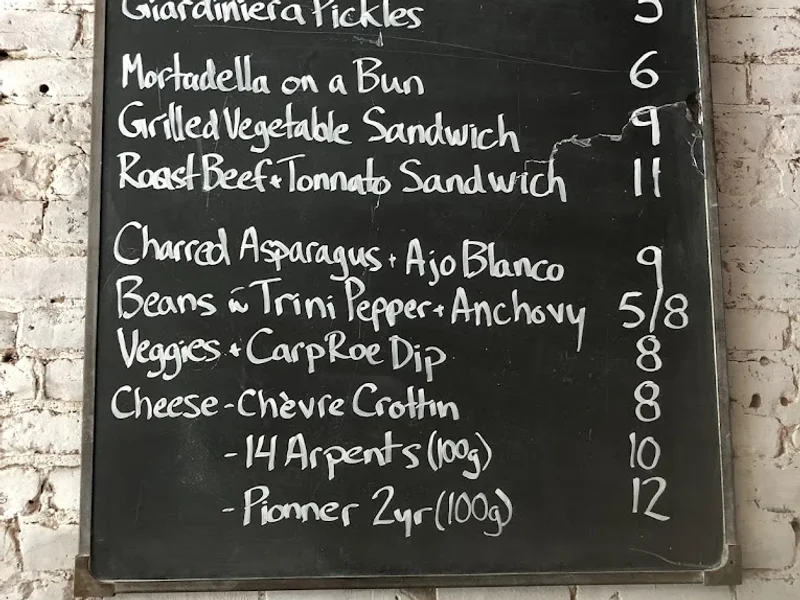 Giardiniera Pickles 5
Mortadella on a Bun 6
Grilled Vegetable Sandwich 9
Roast Beef + Tonnato Sandwich 11
Charred Asparagus + Ajo Blanco 9
Beans in Trini Pepper + Anchovy 5/8
Veggies + Carp Roe Dip 8
Cheese - Chèvre Crottin 8
- 14 Arpents (100g) 10
- Pionner 2yr (100g) 12